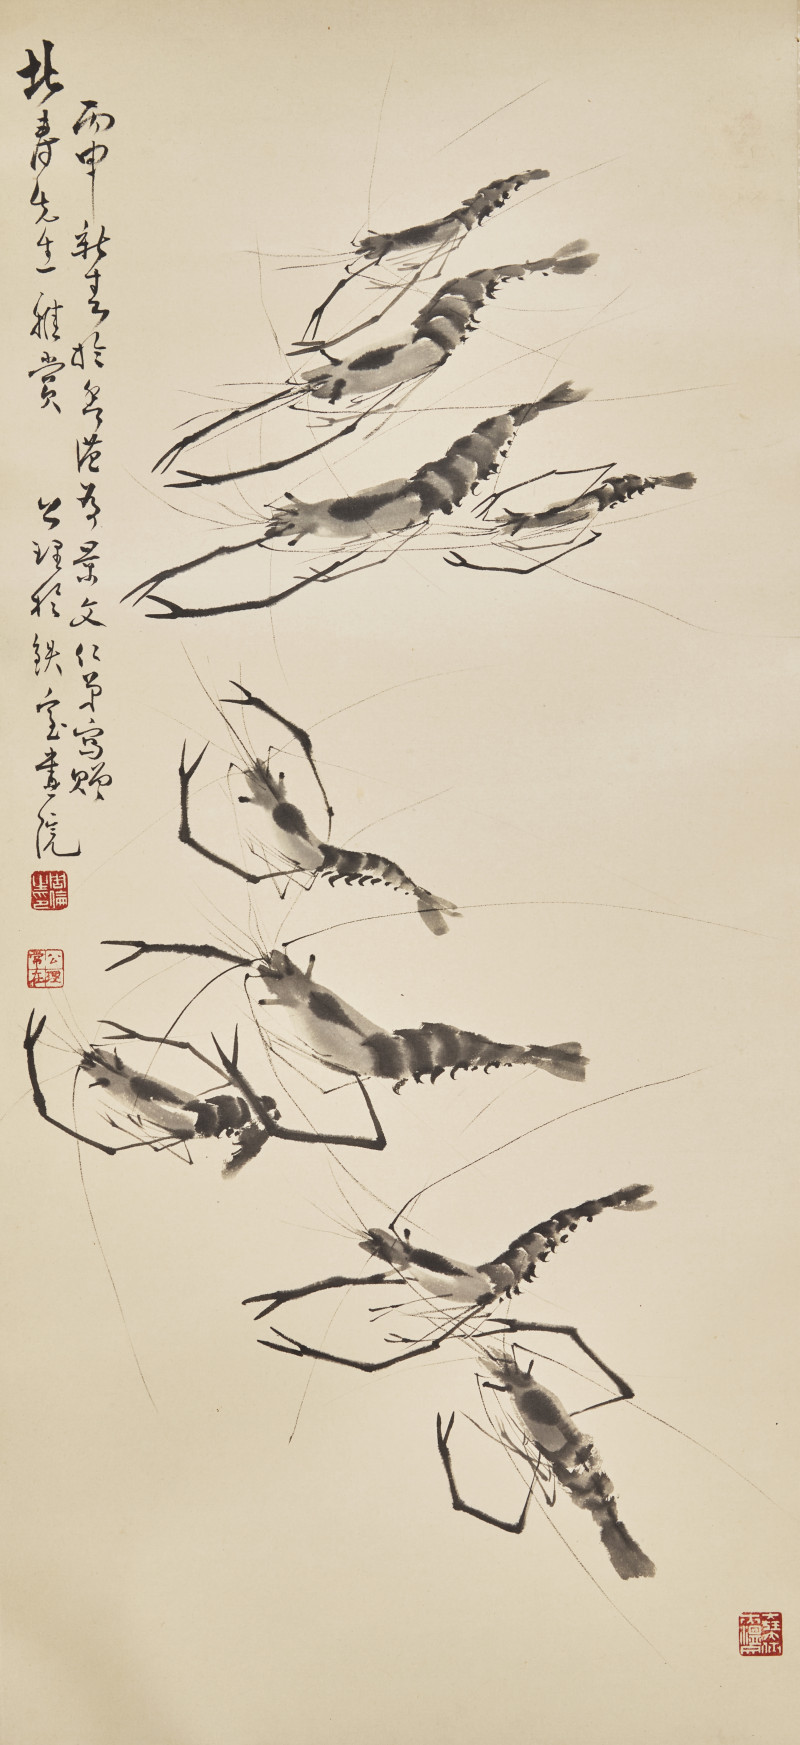 丙申新春於香港為景文仁弟寫贈
北壽先生雅賞 公理於鉄室畫院
公理
常在